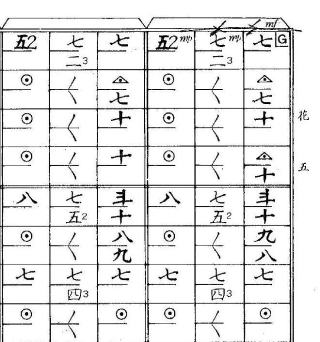 花 五
mf
七 G ◬ 七 十 ◬ 十 斗 十 九 八 七 ⊙
七 mp 二3 く く く 七 五2 く 七 四3 く
五2 mp ⊙ ⊙ ⊙ 八 ⊙ 七 ⊙
七 ◬ 七 十 十 斗 十 八 九 七 ⊙
七 二3 く く く 七 五2 く 七 四3 く
五2 ⊙ ⊙ ⊙ 八 ⊙ 七 ⊙